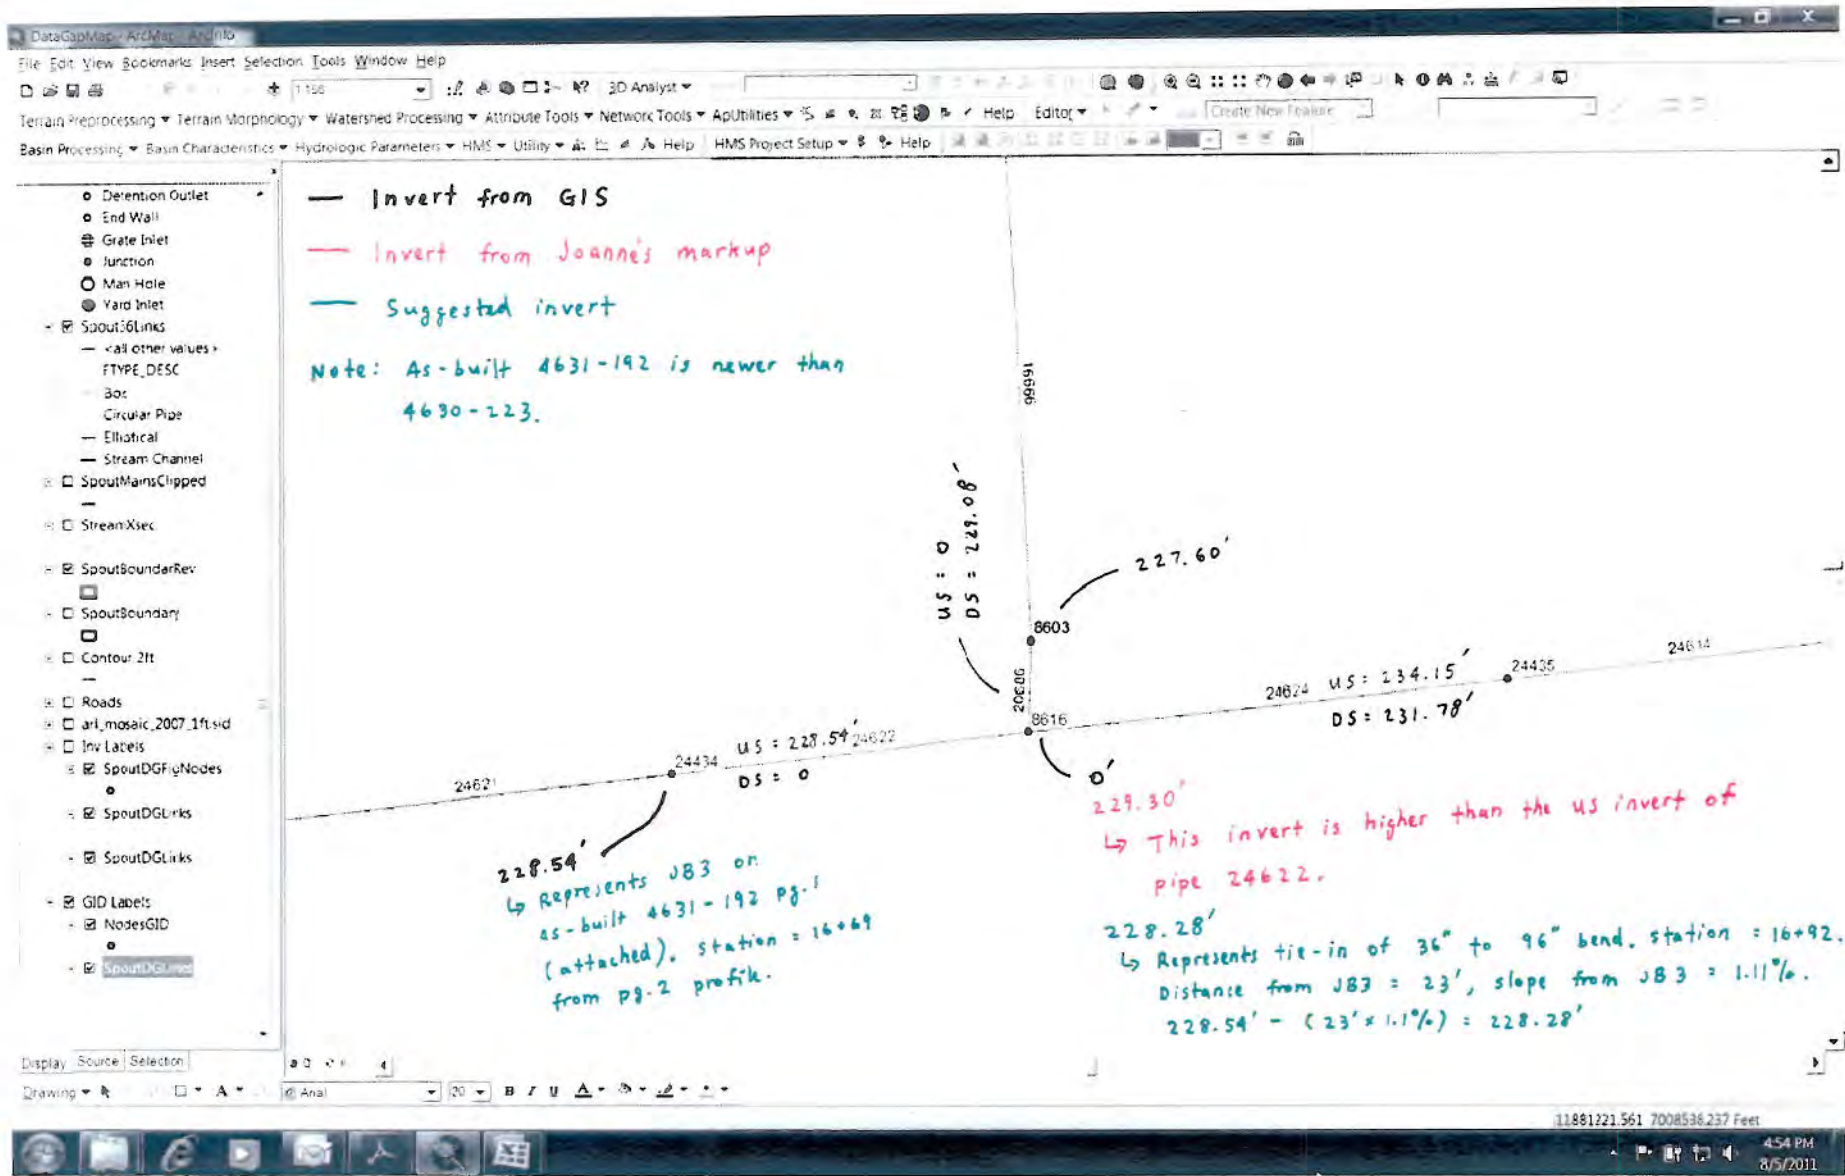 DataGapMap - ArcMap - ArcInfo
File Edit View Bookmarks Insert Selection Tools Window Help
3D Analyst
Terrain Preprocessing Terrain Morphology Watershed Processing Attribute Tools Network Tools ApUtilities Help Editor Create New Feature
Basin Processing Basin Characteristics Hydrologic Parameters HMS Utility Help HMS Project Setup Help
Detention Outlet
End Wall
Grate Inlet
Junction
Man Hole
Yard Inlet
Spout36Links
<all other values>
FTYPE_DESC
Box
Circular Pipe
Elliptical
Stream Channel
SpoutMainsClipped
StreamXsec
SpoutBoundarRev
SpoutBoundary
Contour 2ft
Roads
arl_mosaic_2007_1ft.sid
Inv Labels
SpoutDGFigNodes
SpoutDGLinks
SpoutDGLinks
GID Labels
NodesGID
SpoutDGLines
Display Source Selection
Drawing A Arial 20 B I U A
Invert from GIS
Invert from Joanne's markup
Suggested invert
Note: As-built 4631-192 is newer than
4630-223.
US = 0
DS = 229.08'
227.60'
8603
20686
8616
24614
24435
24624 US = 234.15'
DS = 231.78'
US = 228.54' 24622
DS = 0
24434
24621
0'
229.30'
↳ This invert is higher than the us invert of
pipe 24622.
228.54'
↳ Represents JB3 on
as-built 4631-192 pg.1
(attached). Station = 16+69
from pg.2 profile.
228.28'
↳ Represents tie-in of 36" to 96" bend. station = 16+92.
Distance from JB3 = 23', slope from JB3 = 1.11%.
228.54' - (23' x 1.1%) = 228.28'
11881221.561 7008538.237 Feet
4:54 PM
8/5/2011